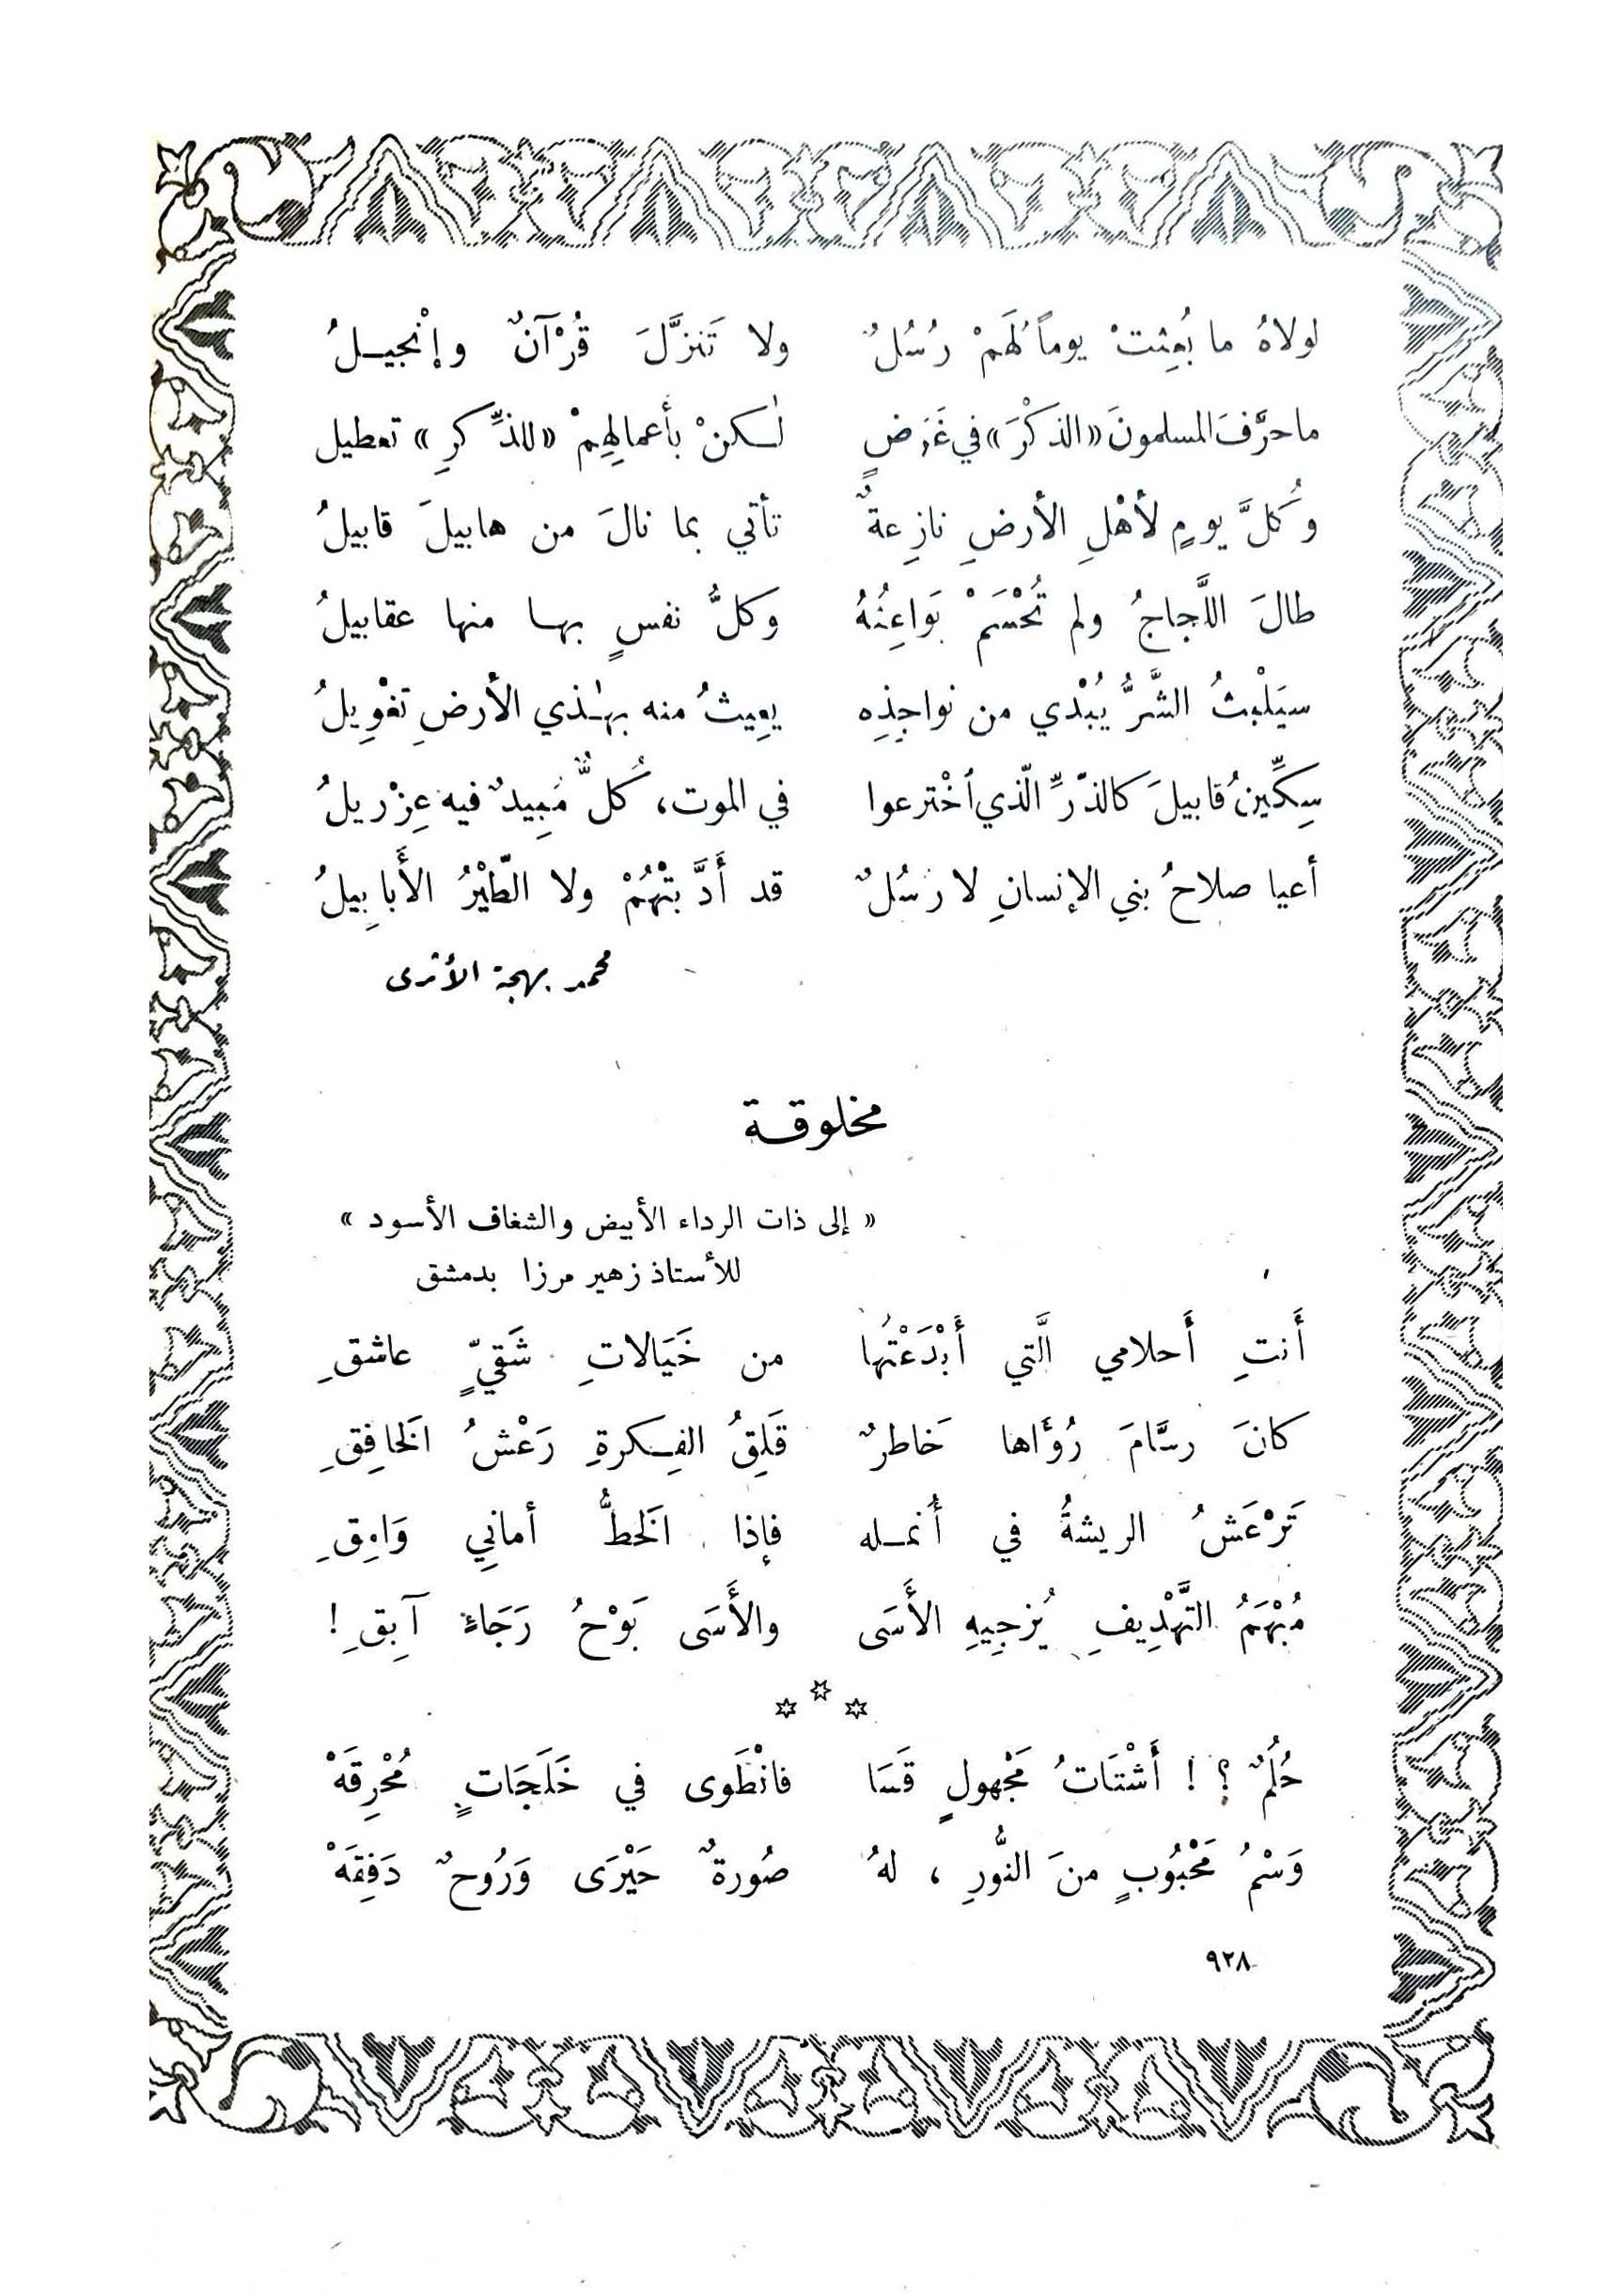 لولاهُ ما بُعِثتْ يوماً لَهَمْ رُسُلٌ ولا تَنزَّلَ قُرْآنٌ وإنْجيـلُ
ما حرَّفَ المسلمونَ «الذكْرَ» في غَرَضٍ لٰـكنْ بأعمالِهِمْ «للذِّكرِ» تعطيل
وكُلَّ يومٍ لأهْلِ الأرضِ نازِعةٌ تأتي بما نالَ من هابيلَ قابيلُ
طالَ اللَّجاجُ ولم تُحْسَمْ بَواعِثُهُ وكلُّ نفسٍ بهـا منها عقابيلُ
سيَلْبثُ الشَّرُّ يُبْدي من نواجِذِه يعِيثُ منه بهٰـذي الأرضِ تغْوِيلُ
سِكِّينُ قابيلَ كالذرِّ الّذي اخْترعوا في الموت، كُلٌّ مُبِيدٌ فيه عِزْريلُ
أعيا صلاحُ بني الإنسانِ لا رُسُلٌ قد أَدَّبتْهُمْ ولا الطَّيْرُ الأَبابِيلُ
محمد بهجة الأثرى
مخلوقـة
« إلى ذات الرداء الأبيض والشغاف الأسود »
للأستاذ زهير مرزا بدمشق
أَنتِ أَحلامي الَّتي أَبْدَعْتُها من خَيَالاتِ شَقيٍّ عاشقِ
كانَ رسَّامَ رُؤَاها خَاطرٌ قَلِقُ الفِـكرةِ رَعْشُ الخافِقِ
تَرْعَشُ الريشةُ في أُنمـله فإذا الخَطُّ أماني وَامِقِ
مُبْهَمُ التَّهْدِيفِ يُزجِيهِ الأَسَى والأَسَى بَوْحُ رَجَاءٍ آبِقِ!
***
حُلُمٌ ؟ ! أَشْتَاتُ مَجْهولٍ قَسَا فانْطَوى في خَلَجَاتٍ مُحْرِقَهْ
وَسْمُ مَحْبُوبٍ منَ النُّورِ ، لهُ صُورةٌ حَيْرَى وَرُوحٌ دَفِقَهْ
٩٢٨